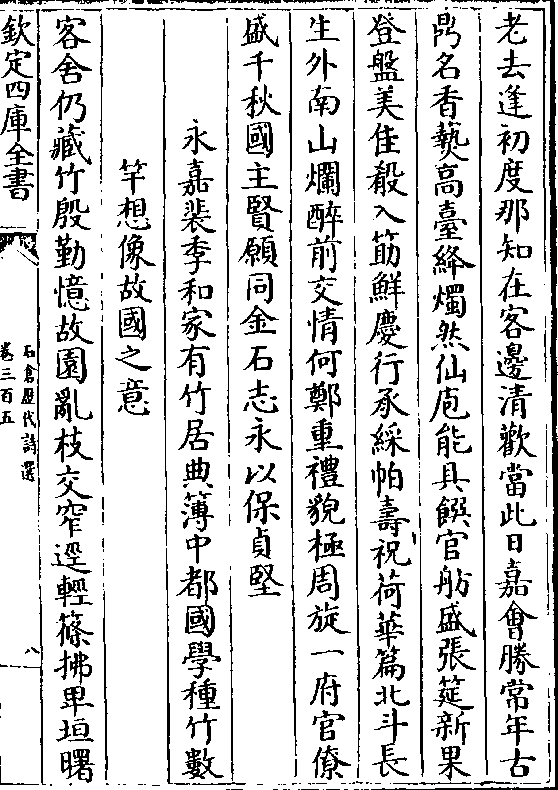 老去逢初度那知在客邊清歡當此日嘉會勝常年古
鼎名香爇高臺絳燭然仙庖能具饌官舫盛張筵新果
登盤美佳殽入筯鮮慶行承綵帕壽祝荷華篇北斗長
生外南山爛醉前交情何鄭重禮貌極周旋一府官僚
盛千秋國主賢願同金石志永以保貞堅
永嘉裴季和家有竹居典簿中都國學種竹數
竿想像故國之意
客舍仍藏竹殷勤憶故園亂枝交窄逕輕篠拂卑垣曙
欽定四庫全書
石倉歷代詩選
卷三百五
八